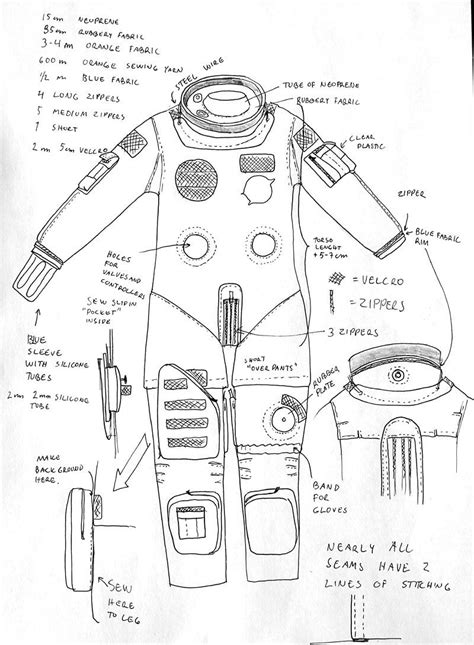 15m NEOPRENE
35m RUBBERY FABRIC
3-4 m ORANGE FABRIC
600 m ORANGE SEWING YARN
1/2 m BLUE FABRIC
4 LONG ZIPPERS
5 MEDIUM ZIPPERS
1 SHORT
2 m 5cm VELCRO
STEEL WIRE
TUBE OF NEOPRENE
RUBBERY FABRIC
CLEAR
PLASTIC
ZIPPER
BLUE FABRIC
RIM
HOLES
FOR
VALVES AND
CONTROLLERS
TORSO
LENGHT
+5-7cm
= VELCRO
= ZIPPERS
SEW SLIP IN
"POCKET"
INSIDE
3 ZIPPERS
BLUE
SLEEVE
WITH SILICONE
TUBES
2m 2mm SILICONE
TUBE
SHORT
"OVER PANTS"
RUBBER
PLATE
MAKE
BACKGROUND
HERE.
BAND
FOR
GLOVES
SEW
HERE
TO LEG
NEARLY ALL
SEAMS HAVE 2
LINES OF STITCHING